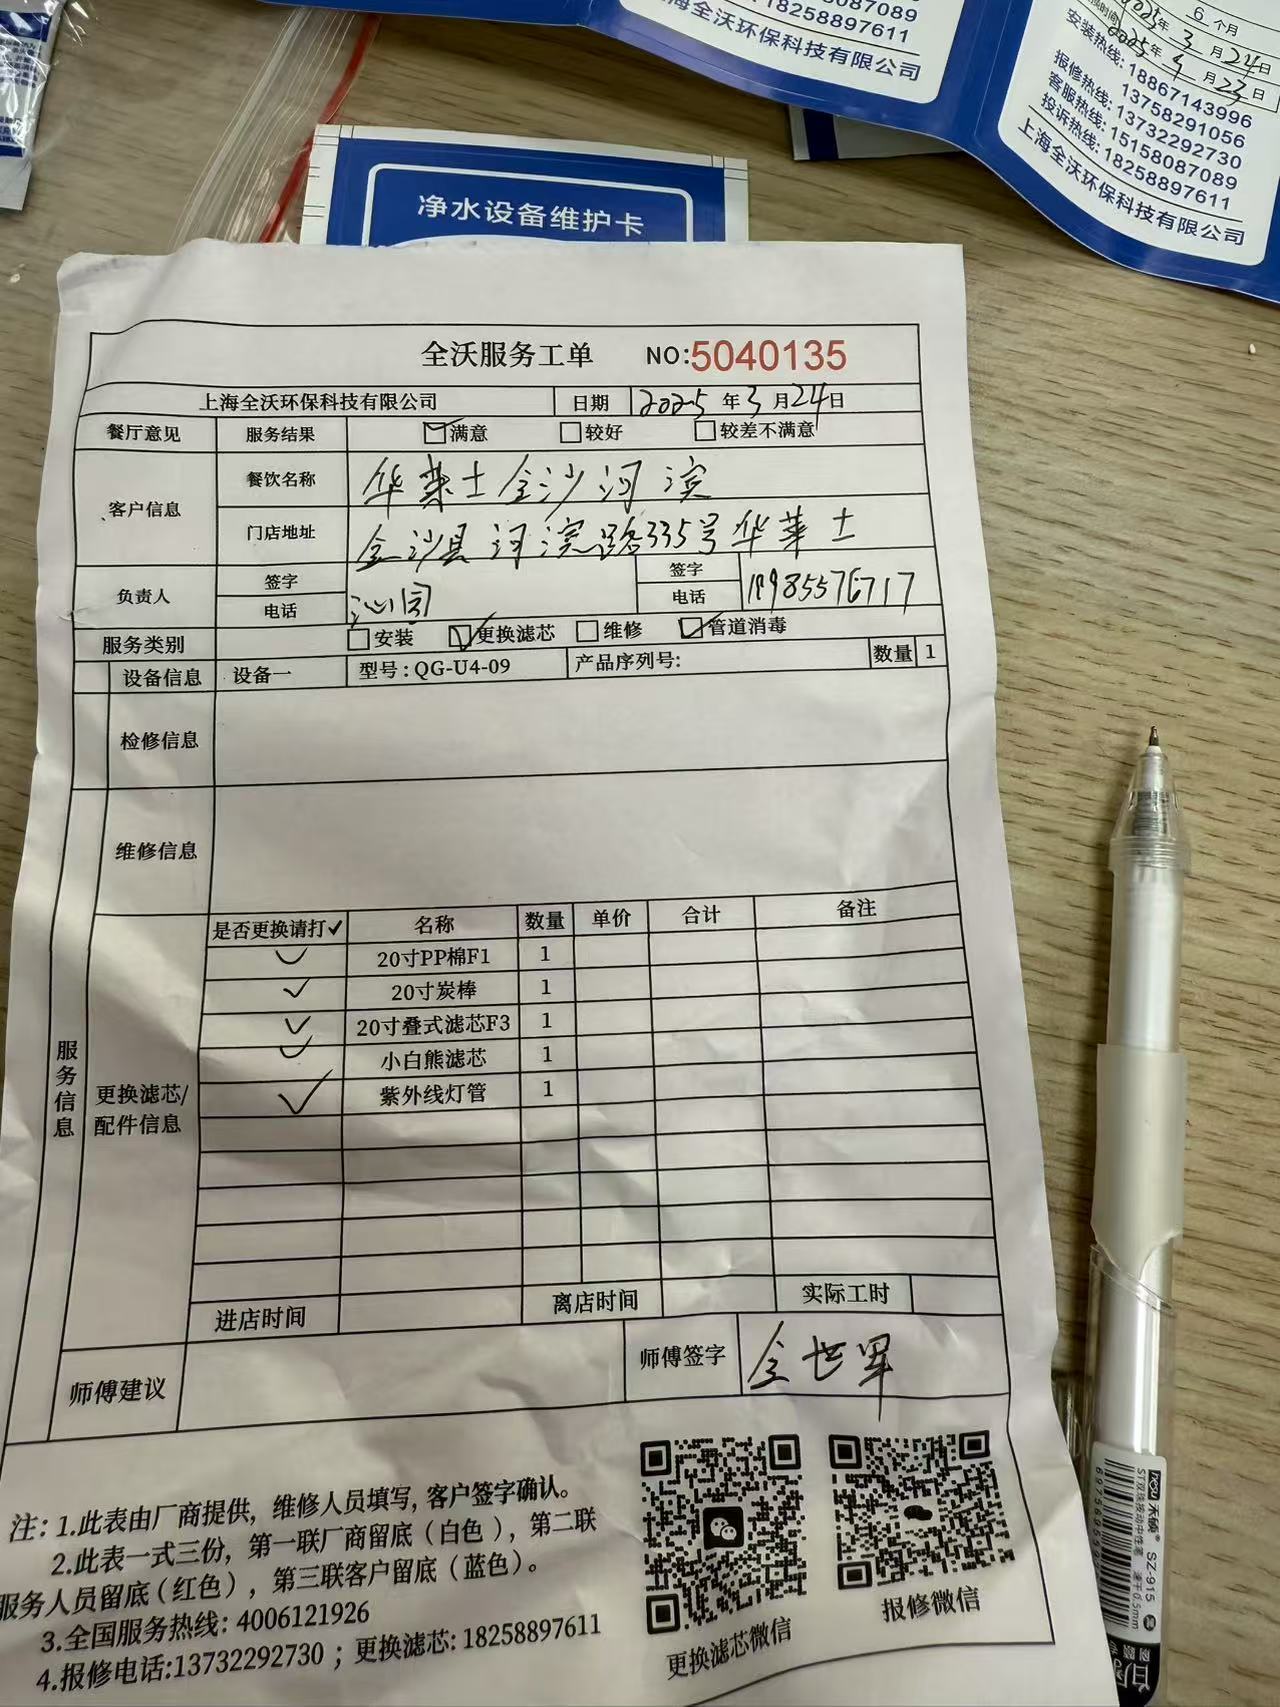 8087089
18258897611
上海全沃环保科技有限公司
6 个月
2025年3月24日
2025年9月23日
安装热线: 18867143996
13758291056
报修热线: 13732292730
客服热线: 15158087089
投诉热线: 18258897611
上海全沃环保科技有限公司
净水设备维护卡
全沃服务工单 NO:5040135
上海全沃环保科技有限公司 日期 2025年3月24日
餐厅意见 服务结果 满意 较好 较差不满意
客户信息 餐饮名称 华莱士金沙河滨
门店地址 金沙县河滨路335号华莱士
负责人 签字 签字
电话 电话
服务类别 安装 更换滤芯 维修 管道消毒
设备信息 设备一 型号:QG-U4-09 产品序列号: 数量 1
检修信息
维修信息
服务信息
更换滤芯/配件信息
是否更换请打✓ 名称 数量 单价 合计 备注
✓ 20寸PP棉F1 1
✓ 20寸炭棒 1
✓ 20寸叠式滤芯F3 1
✓ 小白熊滤芯 1
✓ 紫外线灯管 1
进店时间 离店时间 实际工时
师傅建议 师傅签字
注: 1.此表由厂商提供, 维修人员填写, 客户签字确认。
2.此表一式三份, 第一联厂商留底(白色), 第二联
服务人员留底(红色), 第三联客户留底(蓝色)。
3.全国服务热线: 4006121926
4.报修电话:13732292730 ; 更换滤芯: 18258897611
更换滤芯微信
报修微信
ST双珠按动中性笔
SZ-915